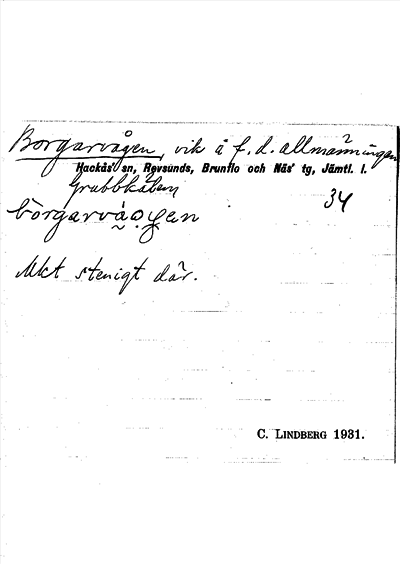 Borgarvågen, vik å f. d. allmänningen
Hackås' sn, Revsunds, Brunflo och Näs' tg, Jämtl. l.
Grubbkälen 34
Mkt stenigt där.
C. LINDBERG 1931.